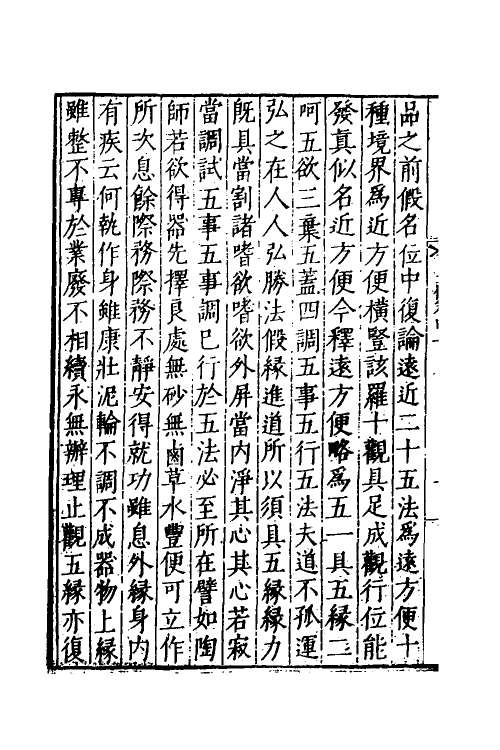 品之前假名位中復論遠近二十五法爲遠方便十
種境界爲近方便橫豎該羅十觀具足成觀行位能
發真似名近方便今釋遠方便略爲五一具五緣二
呵五欲三棄五蓋四調五事五行五法夫道不孤運
弘之在人人弘勝法假緣進道所以須具五緣緣力
旣具當割諸嗜欲嗜欲外屏當內淨其心其心若寂
當調試五事五事調已行於五法必至所在譬如陶
師若欲得器先擇良處無砂無鹵草水豐便可立作
所次息餘際務際務不靜安得就功雖息外緣身內
有疾云何執作身雖康壯泥輪不調不成器物上緣
雖整不專於業廢不相續永無辦理止觀五緣亦復